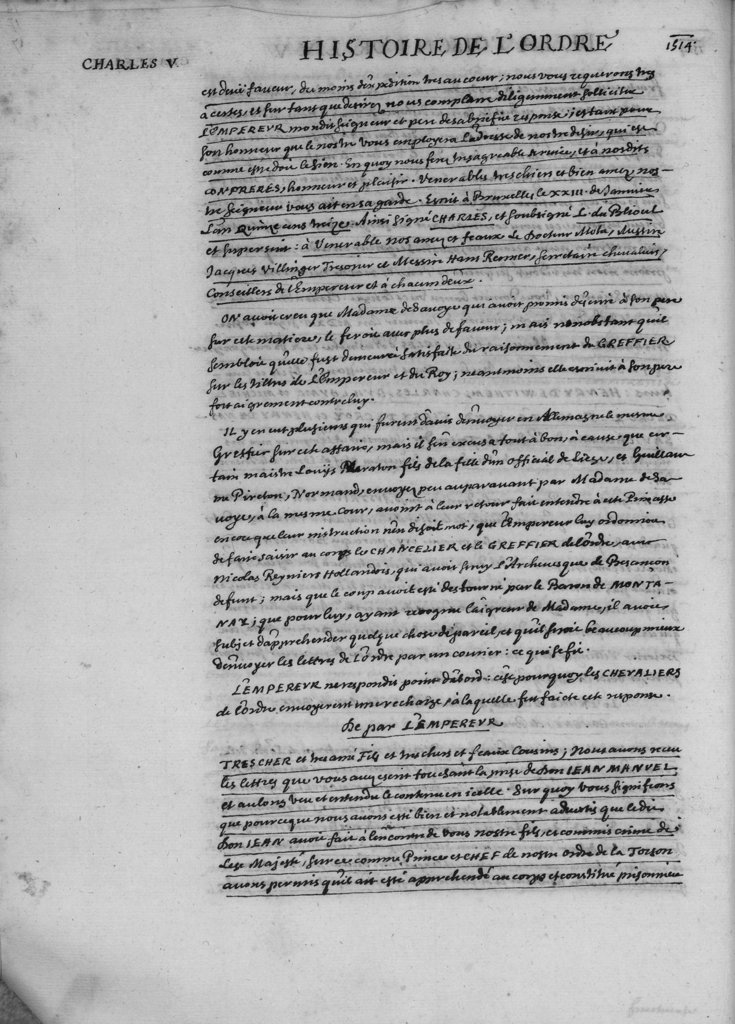 CHARLES V. HISTOIRE DE L'ORDRE 1514.
est deüe faveur, du moins d'expedition tres au coeur; nous vous requerons tres
a certes, et sur tant que desirez nous complaire diligemment solliciter
L'EMPEREUR mondit seigneur et pere de sa briefve response; estant pour
son honneur que le nostre vous employera Ladresse de nostre desir, qui est
comme est dit le sien. En quoy nous ferez tresagreable service, et à nosdits
CONFRERES, honneur et plaisir. Venerables treschiers et bien amez nos-
tre seigneur vous ait en sa garde. Escrit à Bruxelles le XXIII. de Janvier
L'an Quinze cens treize. Ainsi signé CHARLES, et soubsigné L. du Blioul
et superscrit: à Venerable nos amez et feaux Le Docteur Mota, Messire
Jacques Villinger Tresorier et Messire Hans Renner, secretaire chevalier,
Conseillers de l'Empereur et à chacun deux.
ON avoit creu que Madame de Savoye qui avoit promis descrire à son pere
sur cete matiere, le feroit avec plus de faveur; mais nonobstant quoil
sembloit qu'elle fust demeurée satisfaite du raisonnement du GREFFIER
sur les tiltres de L'Empereur et du Roy; neantmoins elle escrivit à son pere
fort aigrement contre luy.
IL y en eut plusieurs qui furent d'avis d'envoyer en Allemagne le mesme
Greffier sur cete affaire, mais il s'en excusa tout à bon, à cause, que cer-
tain maistre Louys Maraton fils de la fille d'un official de Liege, et Guillau-
me Pireton, Normand, envoyez peu auparavant par Madame de Sa-
voye, à la mesme Cour, avoint à leur retour fait entendre à cete Princesse
encore que leur instruction n'en disoit mot, que l'Empereur luy ordonnoit
de faire saisir au corps le CHANCELIER et le GREFFIER de l'ordre, avec
Nicolas Reyniers Hollandois, qui avoit servy L'Archevesque de Besancon
defunt; mais que le coup avoit esté destourné par le Baron de MONTA-
NAY; que pour luy, ayant recognu l'aigreur de Madame, il avoit
subject d'apprehender quelque chose de pareil, et qu'il seroit beaucoup mieux
d'envoyer les lettres de l'ordre par un courier: ce qui se fit.
L'EMPEREUR ne respondit point d'abord: c'est pourquoy les CHEVALIERS
de l'ordre envoyerent une recharge, à laquelle fut faicte cete response.
De par L'EMPEREUR
TRESCHER et tres amé Fils et treschers et feaux Cousins; Nous avons receu
les lettres que vous avez escrit touchant la prise de Don JEAN MANUEL,
et avons veu et entendu le contenu en icelle. Sur quoy vous signifions
que pource que nous avons esté bien et notablement advertis que ledit
Don JEAN avoit fait à l'encontre de vous nostre fils, et commis crime de
Leze Majesté, sur ce comme Prince et CHEF de nostre ordre de la Toison
avons permis qu'il ait esté apprehendé au corps et constitué prisonnier